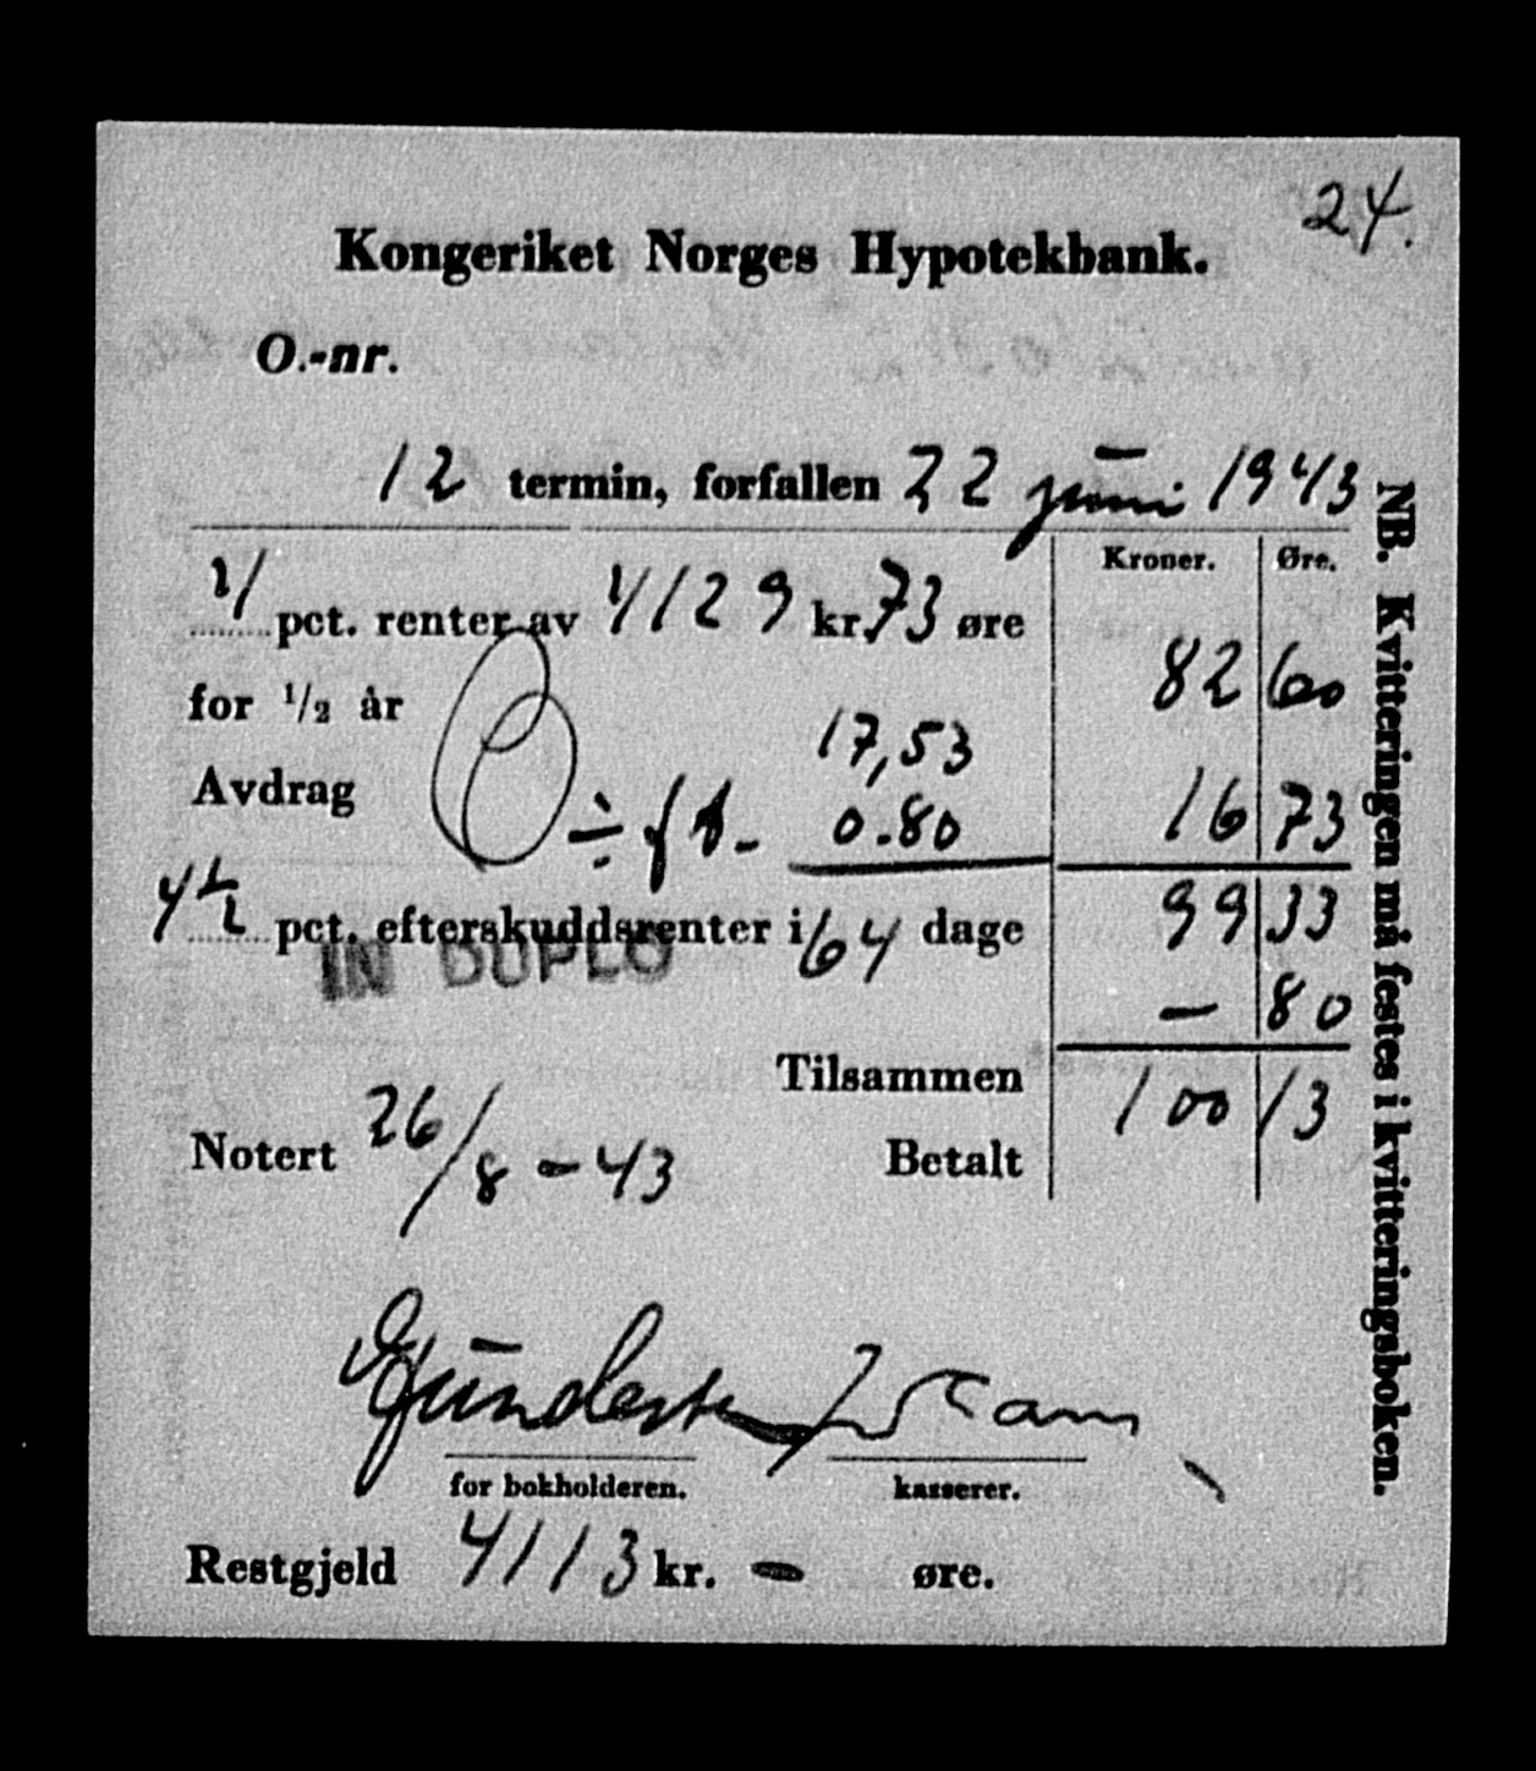 24.
Kongeriket Norges Hypotekbank.
O.-nr.
12 termin, forfallen 22 juni 1943
Kroner. Øre.
4 pct. renter av 4129 kr. 73 øre
82 60
for 1/2 år
17,53
Avdrag ÷ 0.80 16 73
4 1/2 pct. efterskuddsrenter i 64 dage 99 33
IN DUPLO
— 80
Tilsammen 100 13
Notert 26/8-43 Betalt
for bokholderen. kasserer.
Restgjeld 4113 kr. — øre.
NB. Kvitteringen må festes i kvitteringsboken.